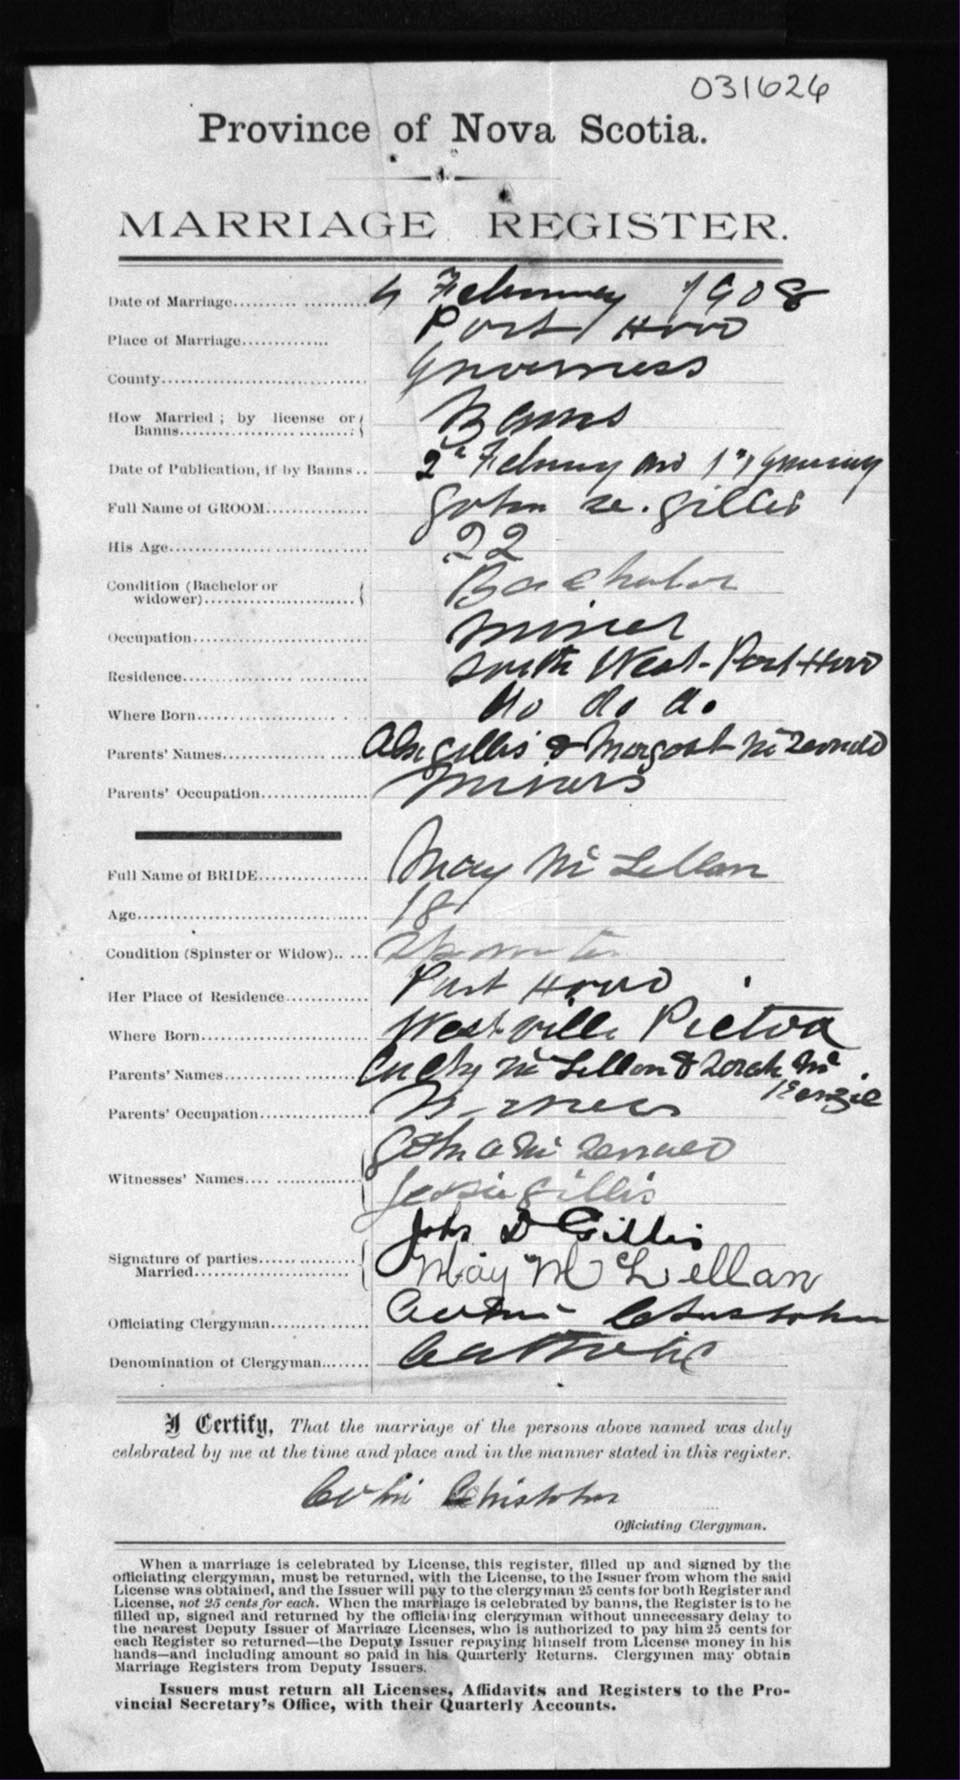 031626
Province of Nova Scotia.
MARRIAGE REGISTER.
Date of Marriage 4 February 1908
Place of Marriage Port Hood
County Inverness
How Married; by license or
Banns Banns
Date of Publication, if by Banns 2nd February and
Full Name of GROOM John D. Gillis
His Age 22
Condition (Bachelor or
widower) Bachelor
Occupation Miner
Residence South West Port Hood
Where Born do do do
Parents' Names Gillis & Margaret McDonald
Parents' Occupation Miners
Full Name of BRIDE May McLellan
Age 18
Condition (Spinster or Widow) Spinster
Her Place of Residence Port Hood
Where Born Westville Pictou
Parents' Names McLellan & Mc
Kenzie
Parents' Occupation
John A McDonald
Witnesses' Names
Jessie Gillis
John D Gillis
Signature of parties
Married May McLellan
Officiating Clergyman Colin Chisholm
Denomination of Clergyman Catholic
I Certify, That the marriage of the persons above named was duly
celebrated by me at the time and place and in the manner stated in this register.
Colin Chisholm
Officiating Clergyman.
When a marriage is celebrated by License, this register, filled up and signed by the
officiating clergyman, must be returned, with the License, to the Issuer from whom the said
License was obtained, and the Issuer will pay to the clergyman 25 cents for both Register and
License, not 25 cents for each. When the marriage is celebrated by banns, the Register is to be
filled up, signed and returned by the officiating clergyman without unnecessary delay to
the nearest Deputy Issuer of Marriage Licenses, who is authorized to pay him 25 cents for
each Register so returned—the Deputy Issuer repaying himself from License money in his
hands—and including amount so paid in his Quarterly Returns. Clergymen may obtain
Marriage Registers from Deputy Issuers.
Issuers must return all Licenses, Affidavits and Registers to the Pro-
vincial Secretary's Office, with their Quarterly Accounts.